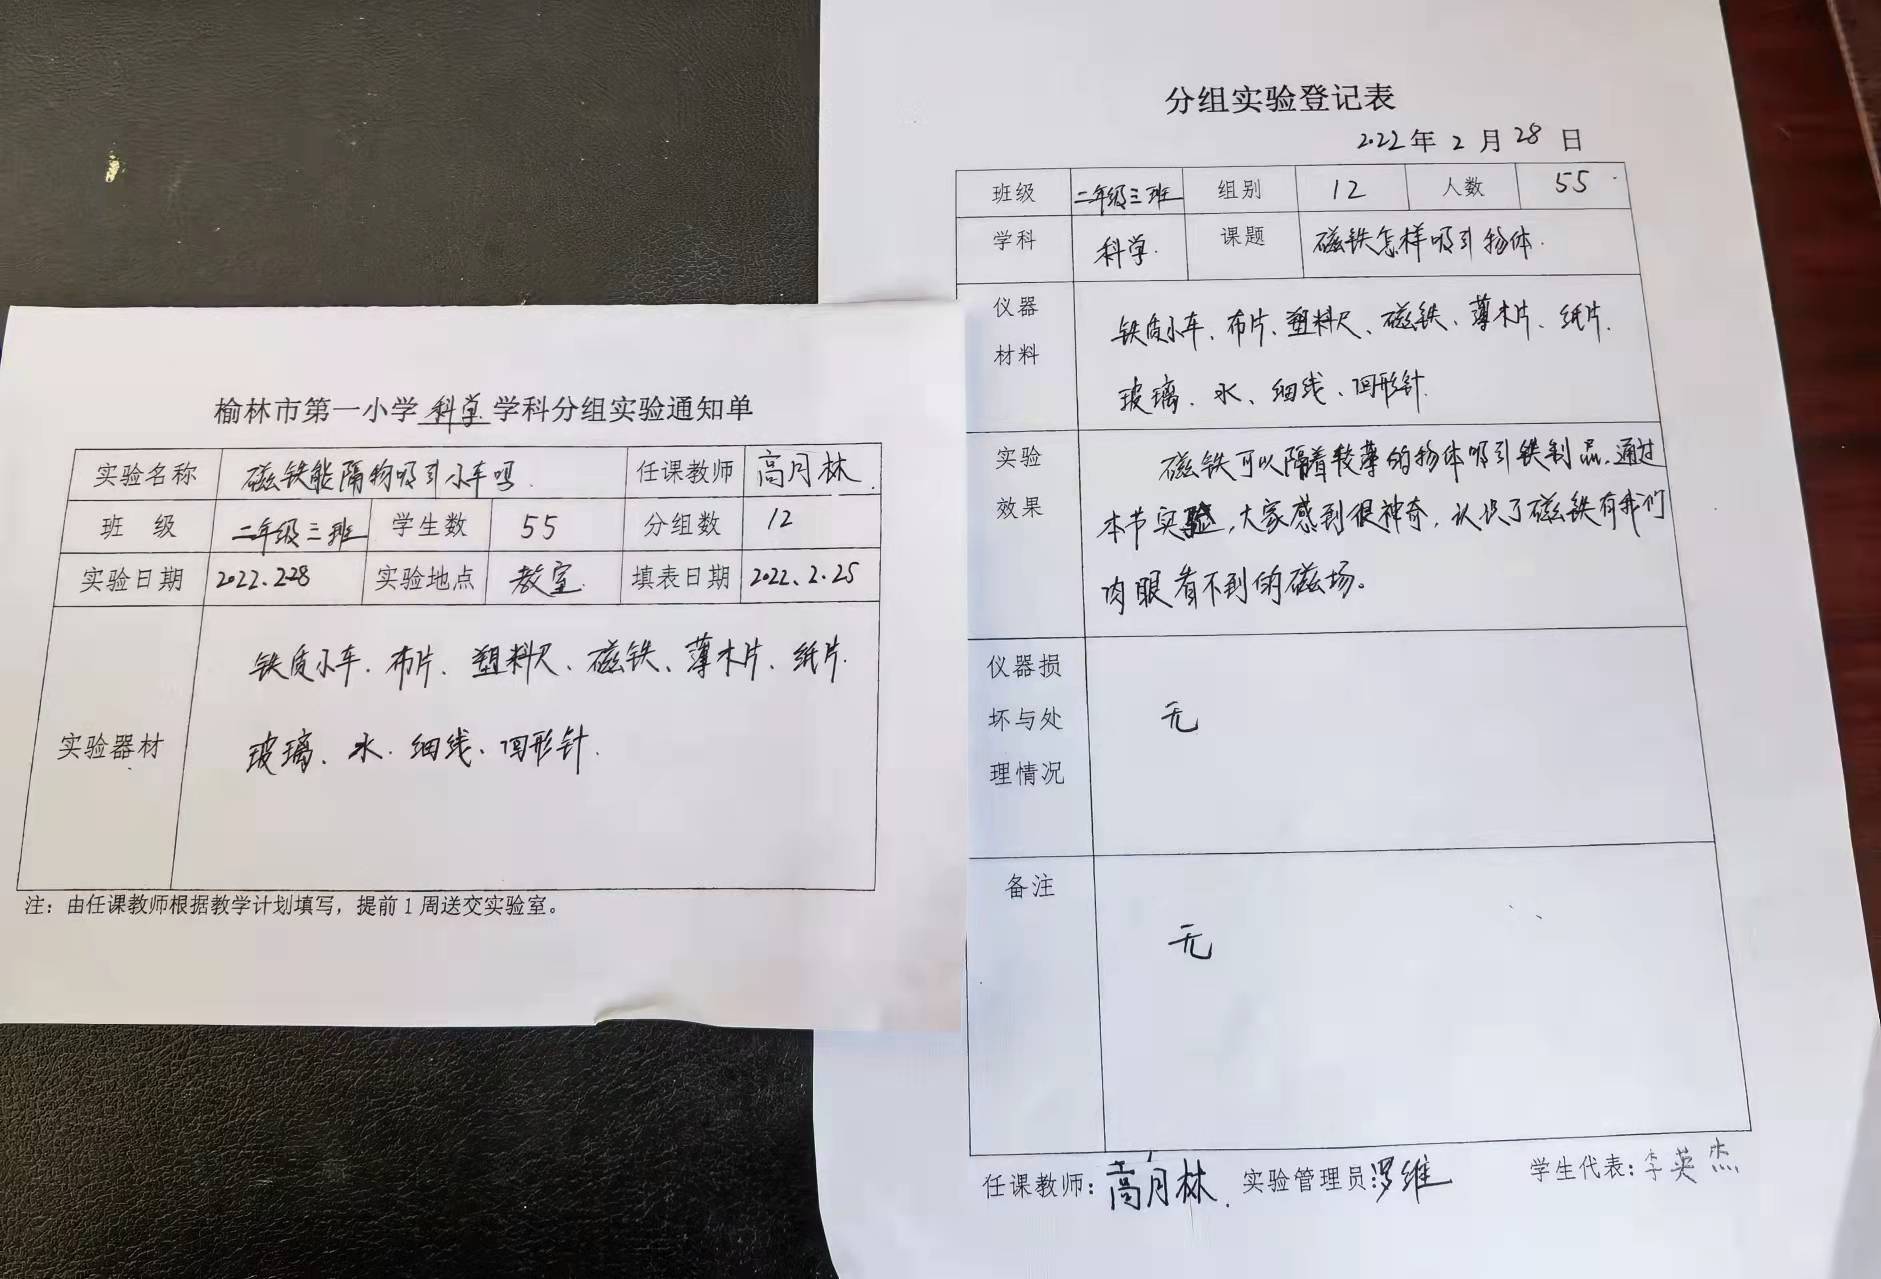 榆林市第一小学科学学科分组实验通知单
实验名称 磁铁能隔物吸引小车吗. 任课教师 高月林.
班 级 二年级三班 学生数 55 分组数 12
实验日期 2022.2.28 实验地点 教室. 填表日期 2022.2.25
实验器材
铁质小车.布片、塑料尺、磁铁、薄木片、纸片.
玻璃、水.细线、回形针.
注：由任课教师根据教学计划填写，提前1周送交实验室。
分组实验登记表
2022年2月28日
班级 二年级三班 组别 12 人数 55
学科 科学. 课题 磁铁怎样吸引物体.
仪器
材料
铁质小车、布片、塑料尺、磁铁、薄木片、纸片.
玻璃、水、细线、回形针.
实验
效果
磁铁可以隔着较薄的物体吸引铁制品.通过
本节实验,大家感到很神奇,认识了磁铁有我们
肉眼看不到的磁场。
仪器损
坏与处
理情况
无
备注
无
任课教师：高月林. 实验管理员:罗维 学生代表：李英杰